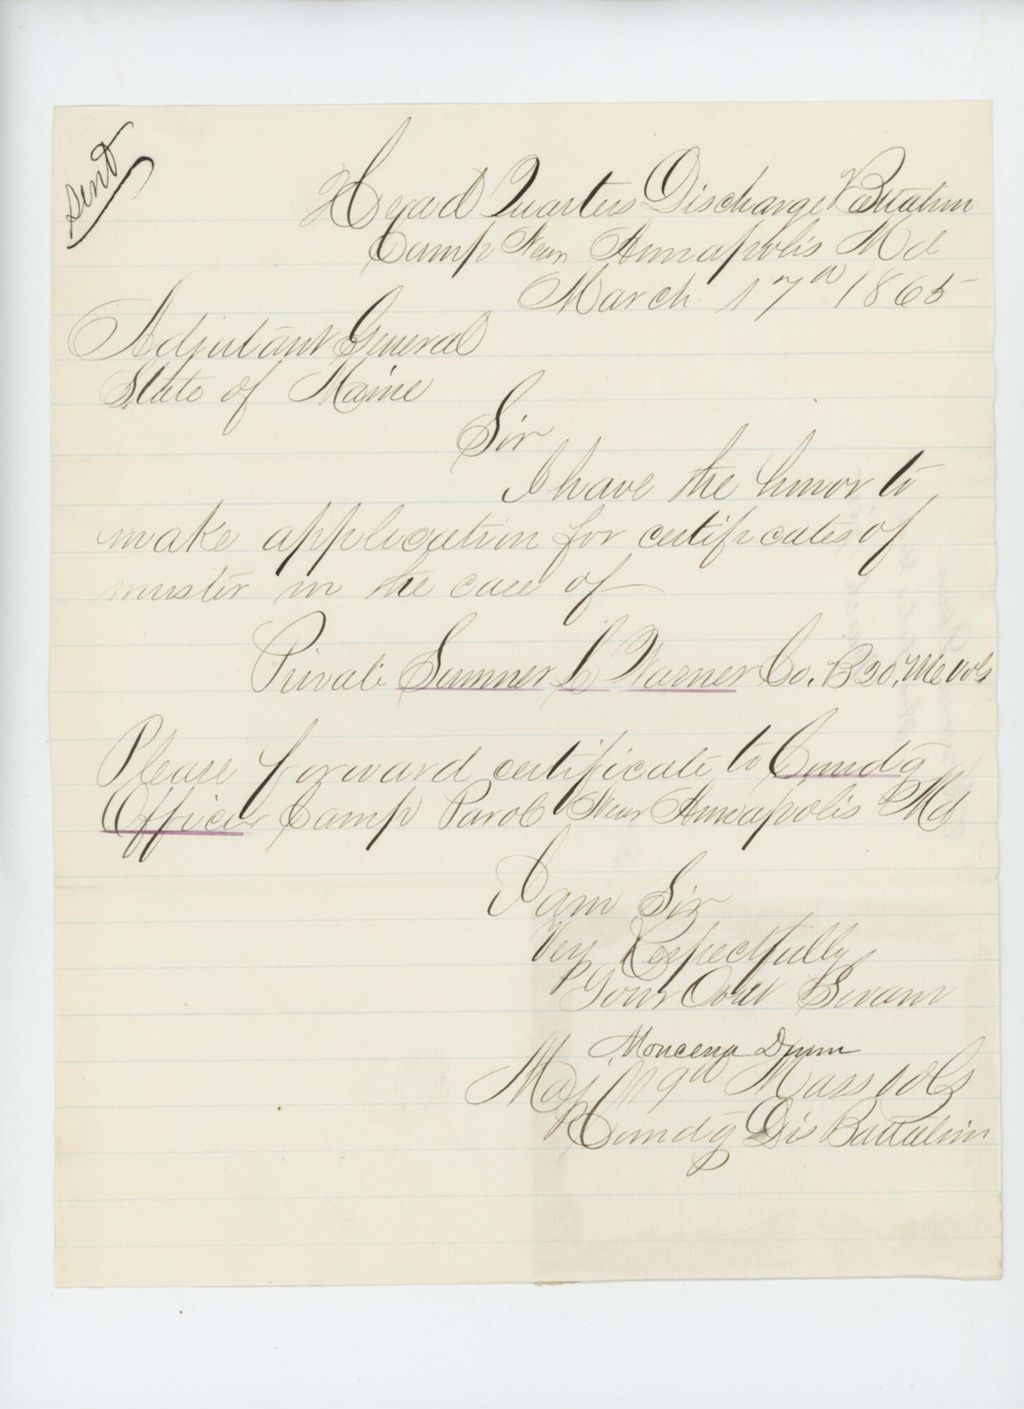 Sent
Head Quarters Discharge Battalion
Camp Near Annapolis Md
March 17th 1865
Adjutant General
State of Maine
Sir
I have the honor to
make application for certificates of
muster in the case of
Private Sumner L Warner Co. B 20, Me Vols
Please forward certificate to Comdg
Officer Camp Parole Near Annapolis Md
I am Sir
Very Respectfully
Your Obdt Servant
Moncena Dunn
Maj 19th Mass Vols
Comdg Dis Battalion